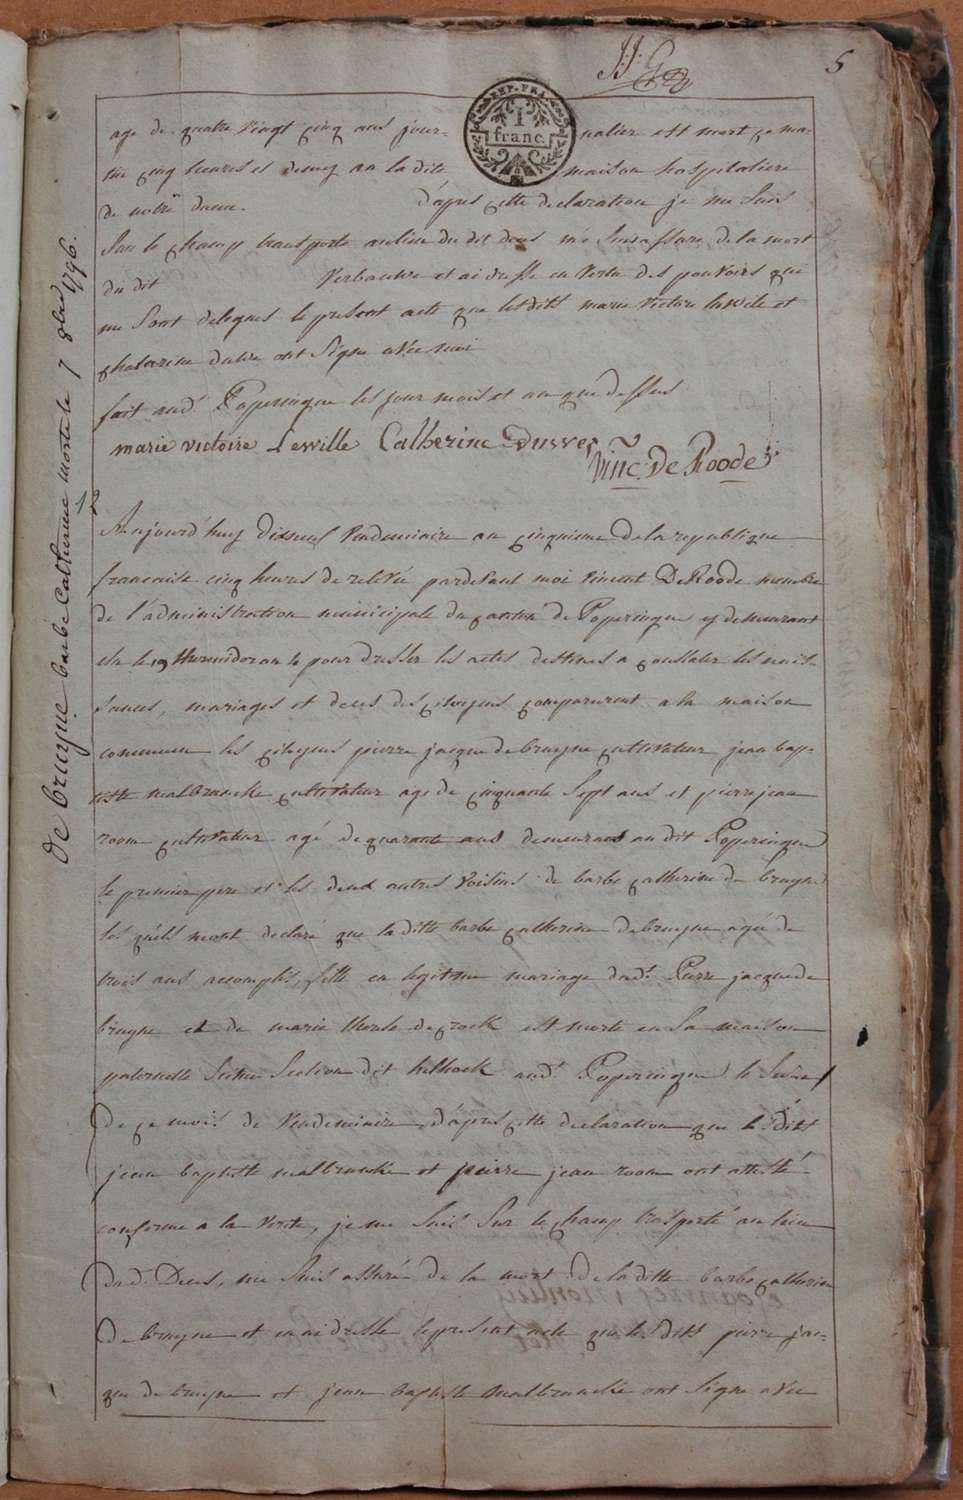 J:J: G
5
REP. FRA.
1
franc.
age de quatre vingt cinq ans jour- nalier est mort ce ma-
tin cinq heures et demy en la dite maison hospitaliere
de notre dame. d'apres cette declaration je me suis
sur le champ transporté au lieu du dit deces m'é suis assuré de la mort
du dit Verbauwe et ai dressé en vertu des pouvoirs qui
me sont delegués le present acte que lesdits marie victoire lewille et
catherine duvve ont signé avec moi
fait aud.t Poperingue les jour mois et an que dessus
marie victoire Lewille Catherine Duvve
vinc. De Roode
de bruyne barbe Catherine morte le 7 8bre 1796.
12
Aujourd'huy dixneuf Vendemiaire an cinquieme de la republique
francaise cinq heures de relevée pardevant moi vincent De Roode membre
de l'administration municipale du canton de Poperingue y demeurant
elu le 19 thermidor an 4 pour dresser les actes destinés a constater les nais-
sances, mariages et deces des citoyens comparurent a la maison
commune les citoyens pierre jacque de bruyne cultivateur jean bap-
tiste malbrancke cultivateur age de cinquante sept ans et pierre jean
room cultivateur agé de quarante ans demeurant au dit Poperingue
le premier pere et les deux autres voisins de barbe catherine de bruyne
les quels m'ont declaré que la ditte barbe catherine de bruyne agée de
trois ans accomplis, fille en legitime mariage dud.t Pierre jacque de
bruyne et de marie therese de crock est morte en sa maison
paternelle section dit helhoek aud.t Poperingue le seize
de ce mois de Vendemiaire d'apres cette declaration que les Dits
jean baptiste malbrancke et pierre jean room ont attesté
conforme a la verité, je me suis sur le champ trasporté au lieu
dud.t Deces, me suis assuré de la mort de la ditte barbe catherine
de bruyne et en ai dressé le present acte que les Dits pierre jac-
que de bruyne et jean baptiste malbrancke ont signé avec